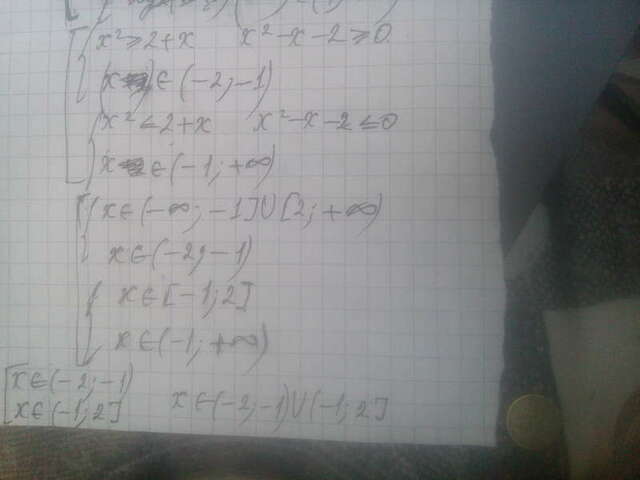 x² ≥ 2+x x²-x-2 ≥ 0
x ∈ (-2; -1)
x² ≤ 2+x x²-x-2 ≤ 0
x ∈ (-1; +∞)
x ∈ (-∞; -1] ∪ [2; +∞)
x ∈ (-2; -1)
x ∈ [-1; 2]
x ∈ (-1; +∞)
x ∈ (-2; -1)
x ∈ (-1; 2] x ∈ (-2; -1) ∪ (-1; 2]